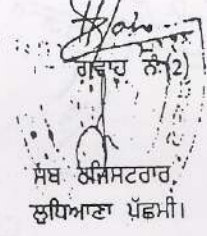 ਗਵਾਹ ਨੰ:(2)
ਸਬ ਰਜਿਸਟਰਾਰ,
ਲੁਧਿਆਣਾ ਪੱਛਮੀ।